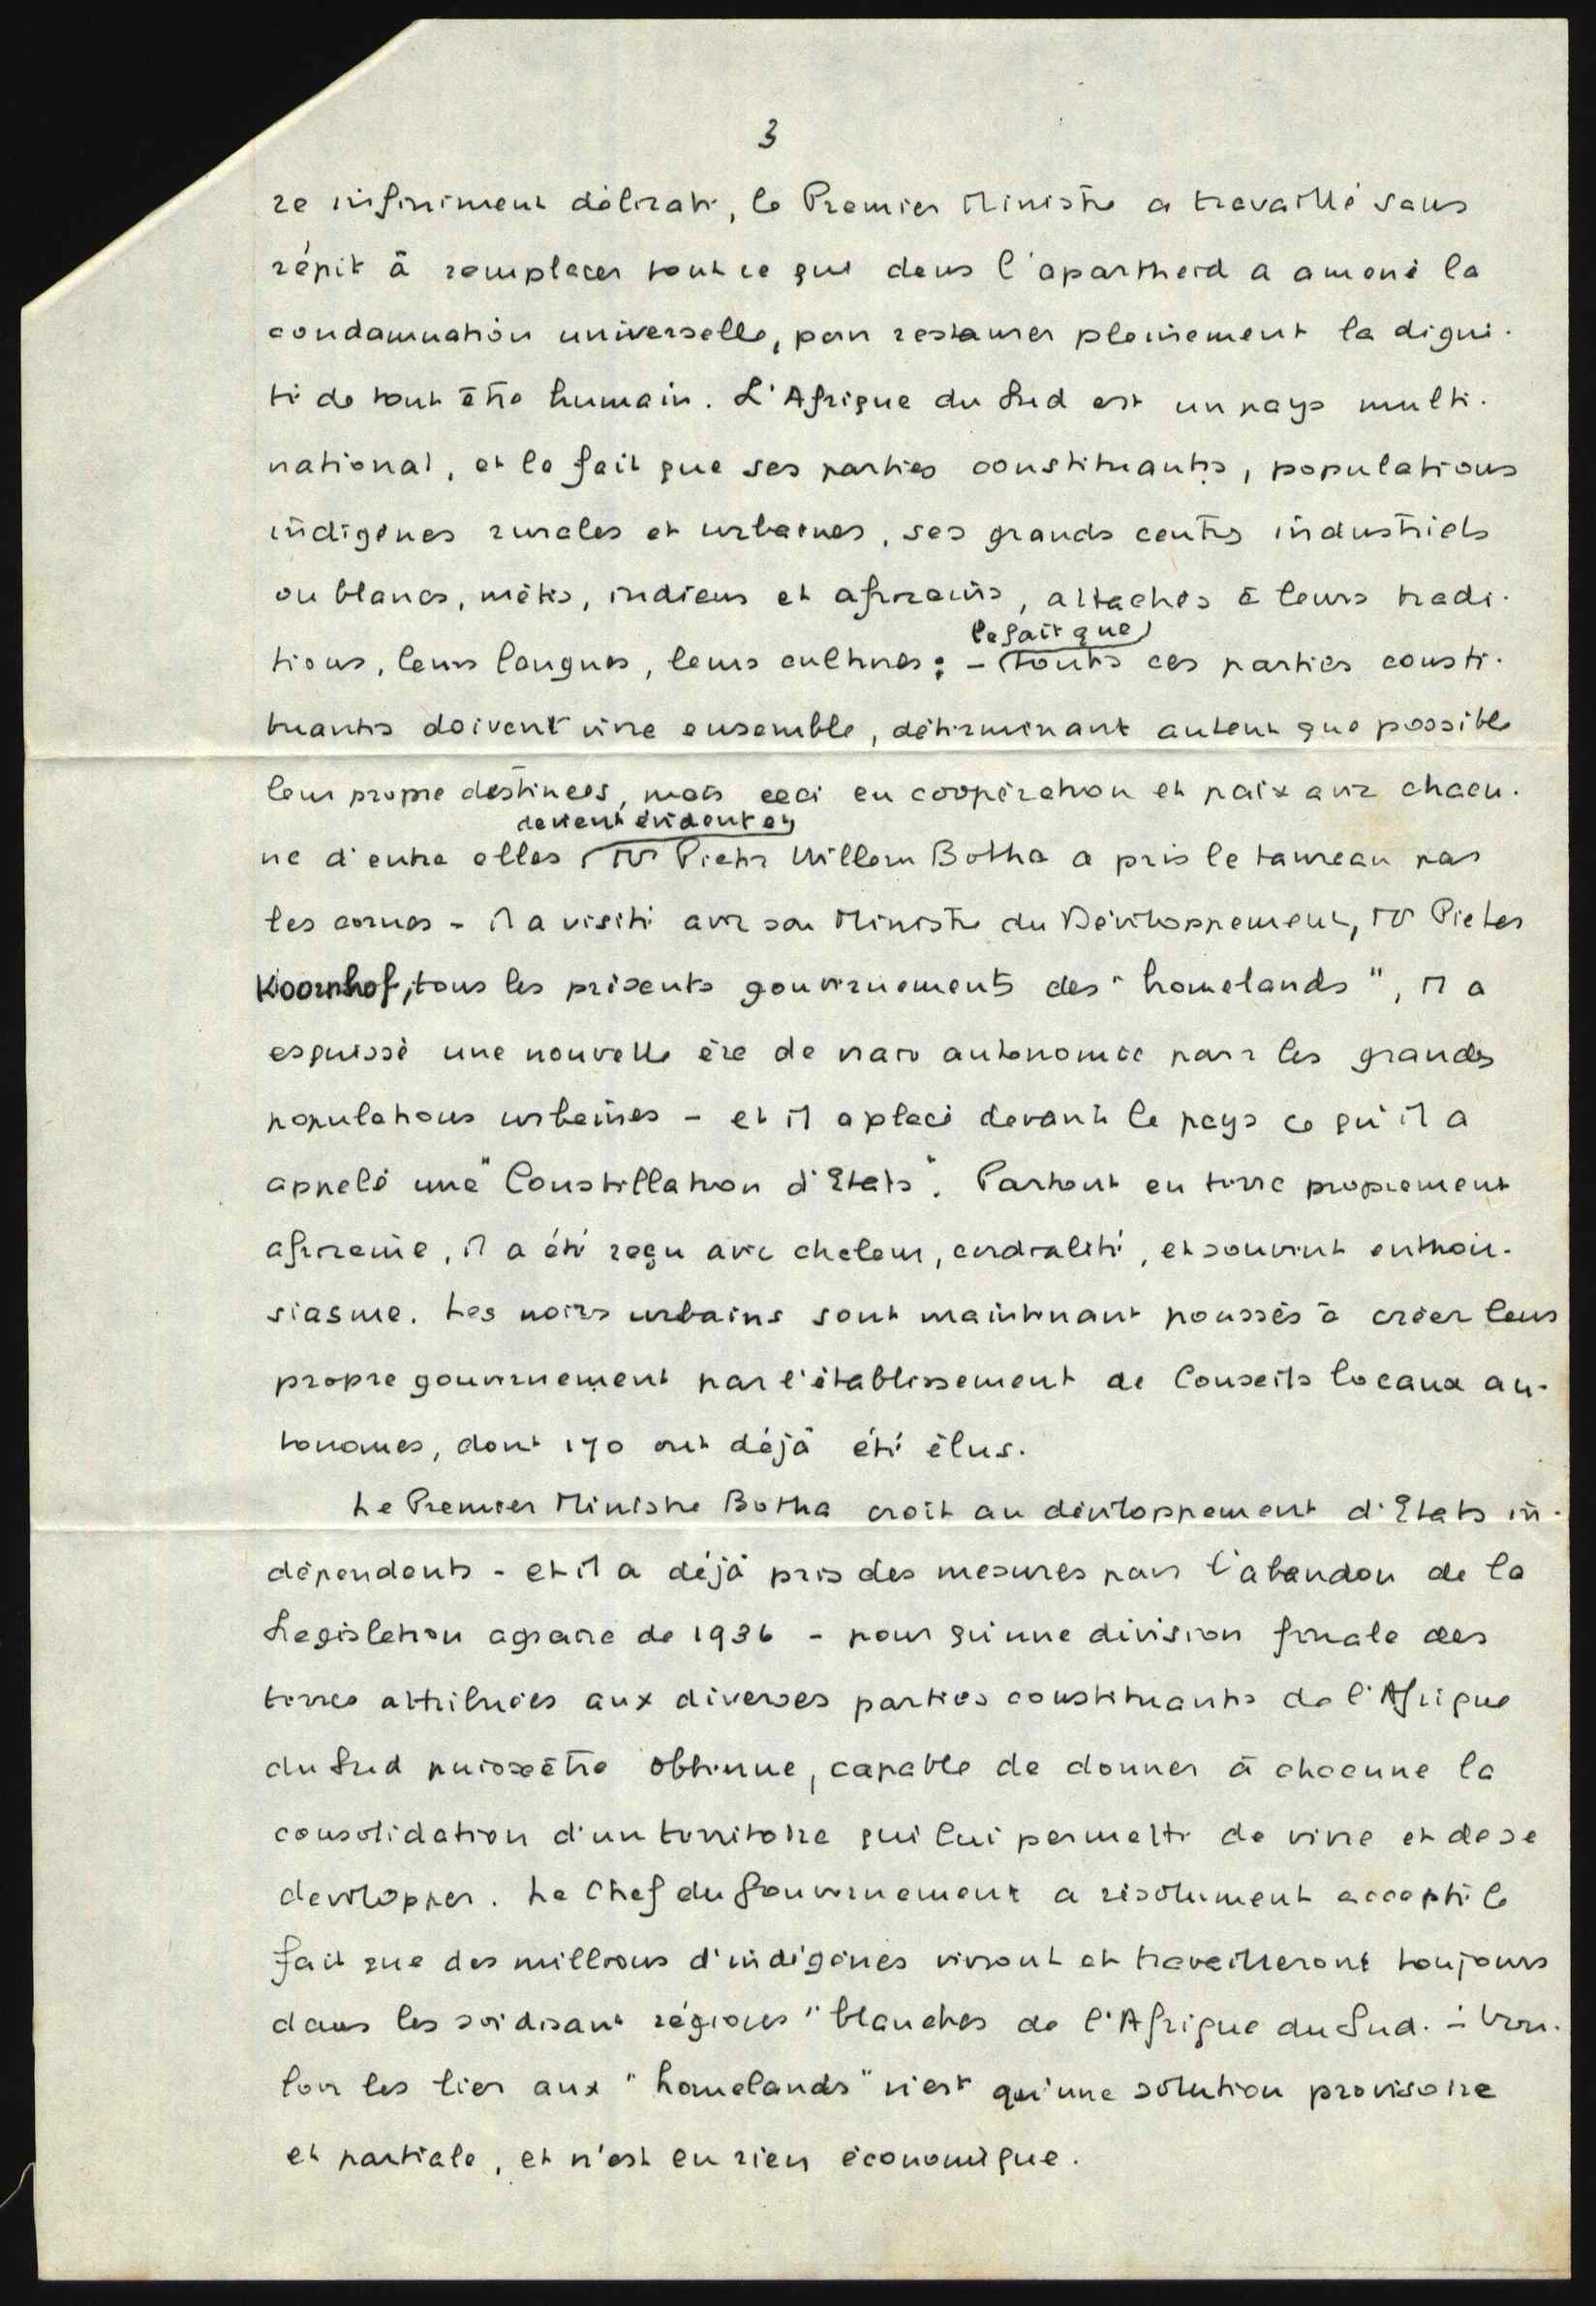 3
re infiniment délicate, le Premier Ministre a travaillé sans
répit à remplacer tout ce qui dans l'apartheid a amené la
condamnation universelle, pour restaurer pleinement la digni-
té de tout être humain. L'Afrique du Sud est un pays multi-
national, et le fait que ses parties constituantes, populations
indigènes rurales et urbaines, ses grands centres industriels
ou blancs, métis, indiens et africains, attachés à leurs tradi-
le fait que
tions, leurs langues, leurs cultures; - toutes ces parties consti-
tuantes doivent vivre ensemble, déterminant autant que possible
leur propre destinées, mais ceci en coopération et paix avec chacu-
devient évident et
ne d'entre elles Mr Pieter Willem Botha a pris le taureau par
les cornes - il a visité avec son Ministre du Développement, Mr Pieter
Koornhof, tous les présents gouvernements des "homelands", il a
esquissé une nouvelle ère de vraie autonomie pour les grandes
populations urbaines - et il a placé devant le pays ce qu'il a
appelé une "Constellation d'Etats". Partout en terre proprement
africaine, il a été reçu avec chaleur, cordialité, et souvent enthou-
siasme. Les noirs urbains sont maintenant poussés à créer leurs
propre gouvernement par l'établissement de Conseils locaux au-
tonomes, dont 170 ont déjà été élus.
Le Premier Ministre Botha croit au développement d'Etats in-
dépendants - et il a déjà pris des mesures pour l'abandon de la
Legislation agraire de 1936 - pour qu'une division finale des
terres attribuées aux diverses parties constituantes de l'Afrique
du Sud puisse être obtenue, capable de donner à chacune la
consolidation d'un territoire qui lui permette de vivre et de se
developper. Le Chef du Gouvernement a résolument accepté le
fait que des millions d'indigènes vivront et travailleront toujours
dans les soidisant régions "blanches de l'Afrique du Sud. - Vou-
loir les lier aux "homelands" n'est qu'une solution provisoire
et partiale, et n'est en rien économique.